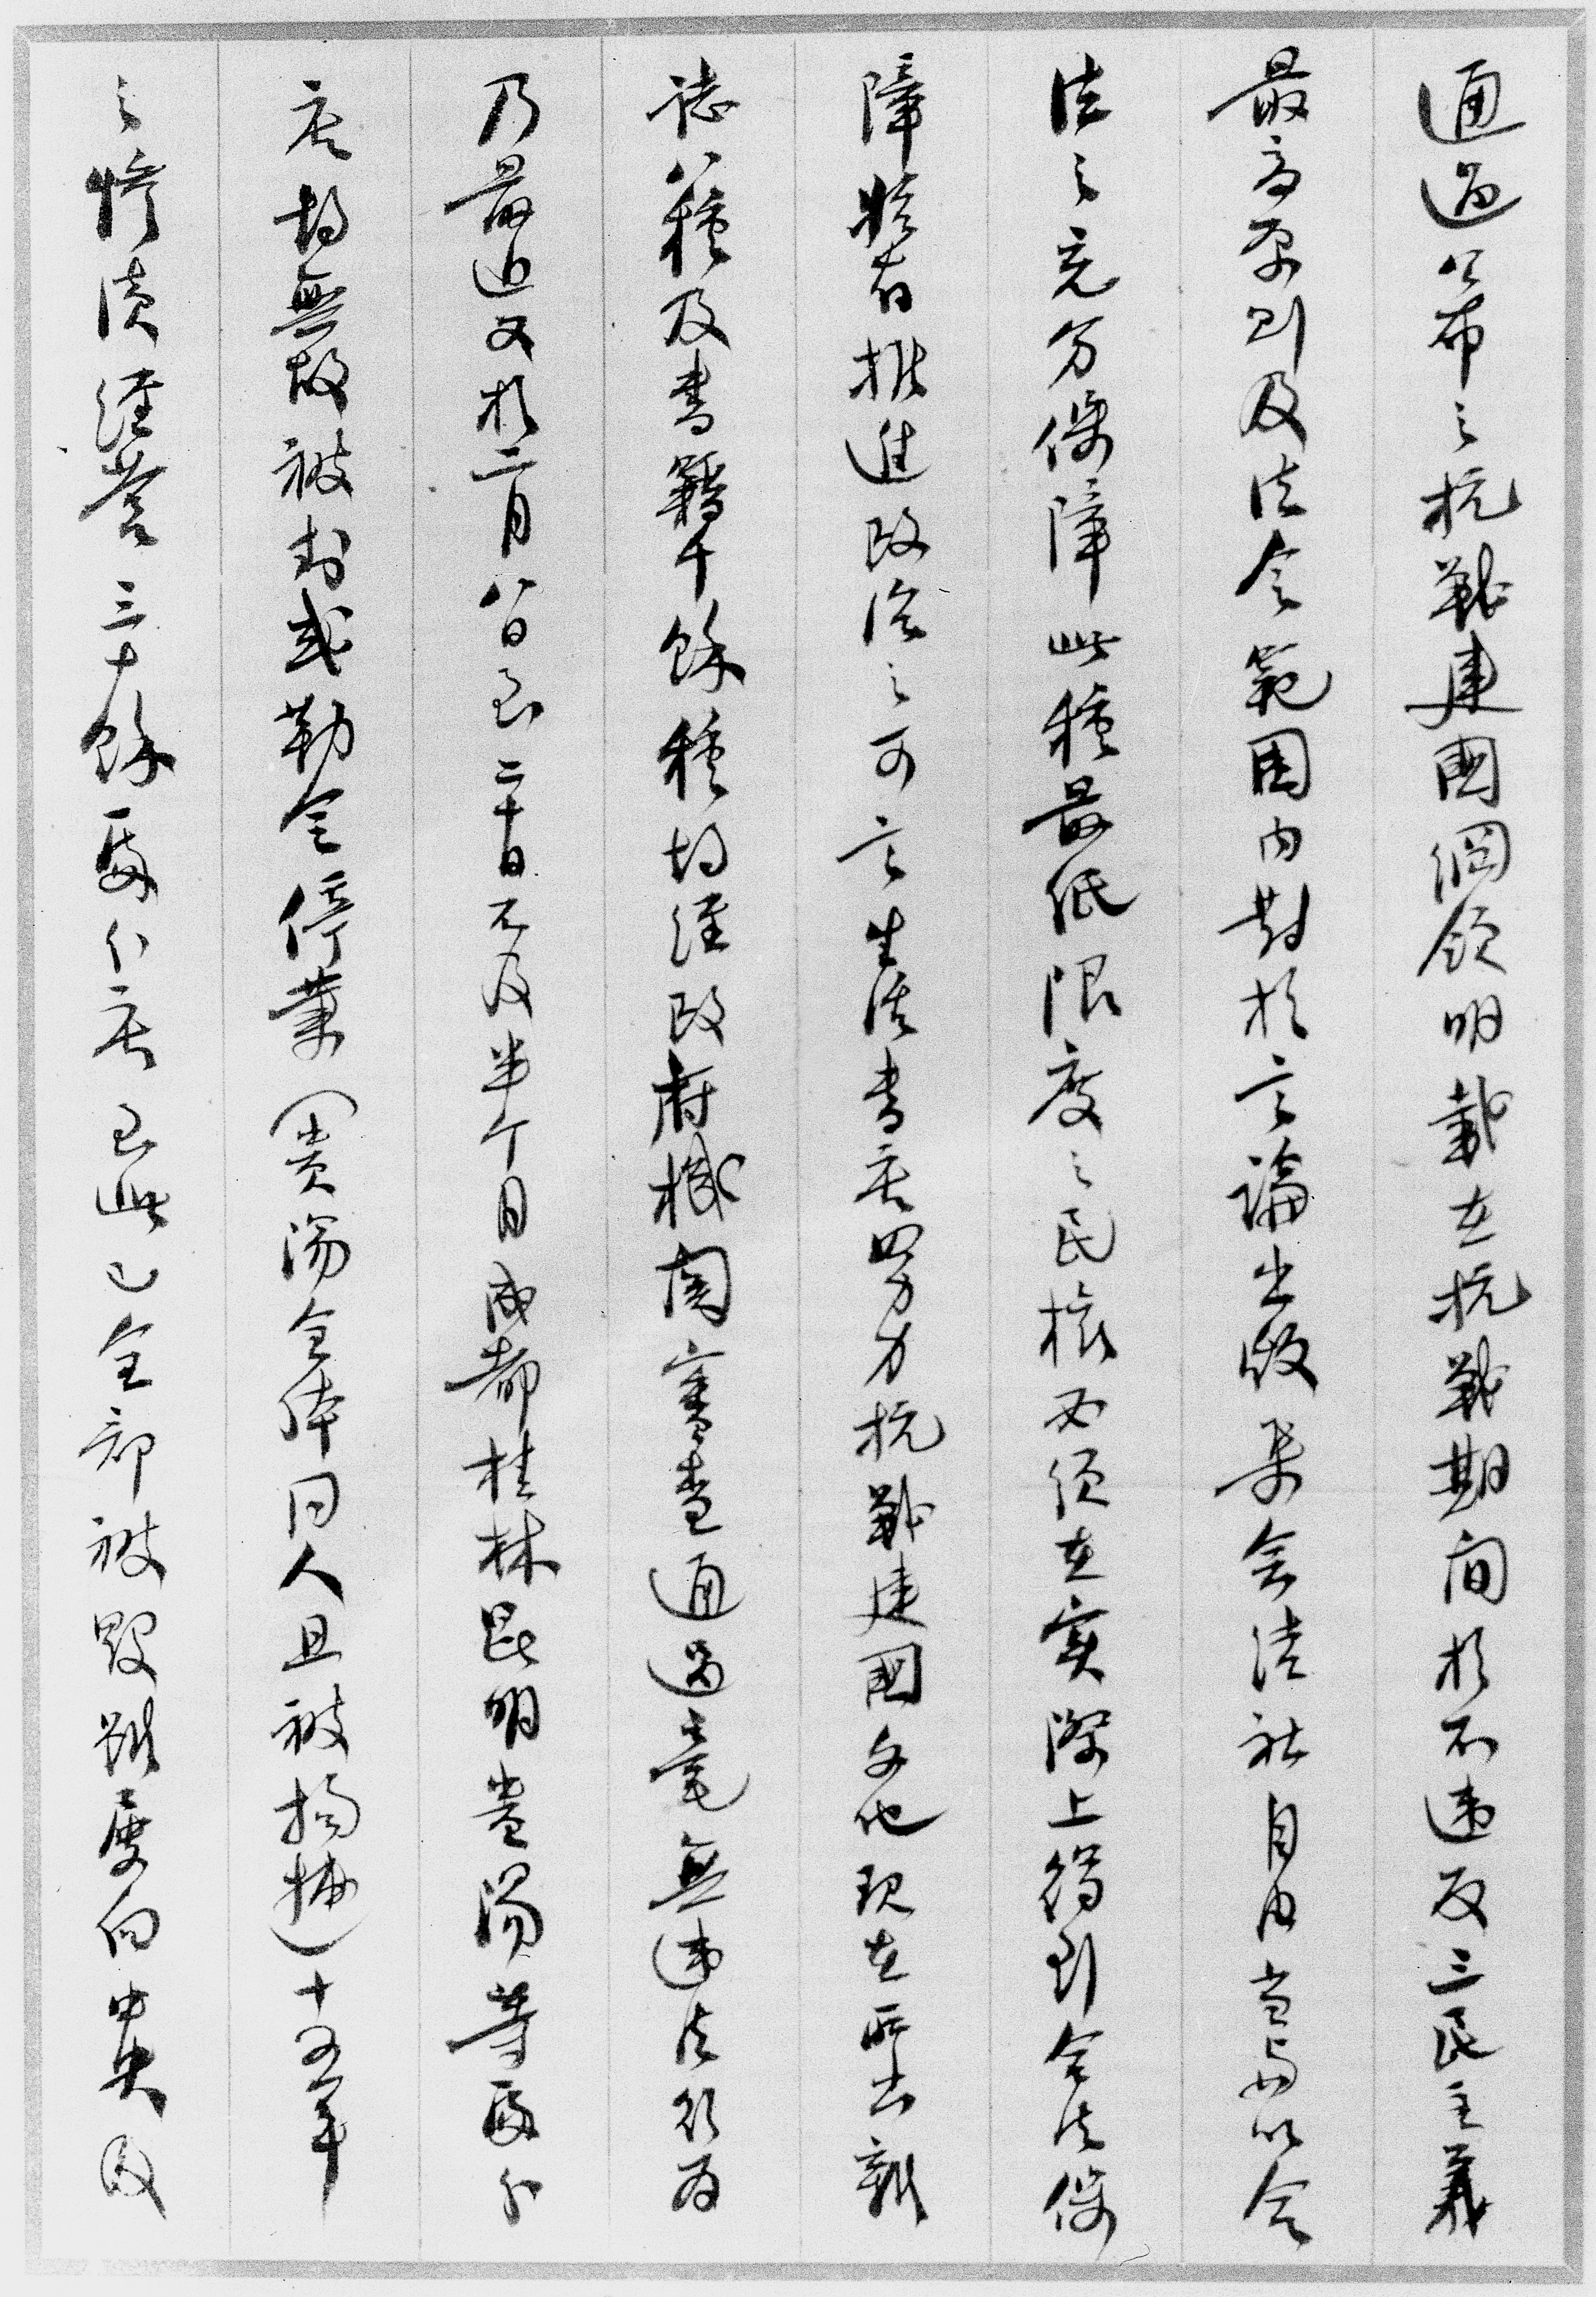 通過公布之抗戰建國綱領明載在抗戰期間於不違反三民主義
最高原則及法令範圍內對於言論出版集會結社自由當與以合
法之充分保障此種最低限度之民權必須在實際上得到合法保
障然有推進政治之可言生活書店努力抗戰建國文化現在所出雜
誌八種及書籍千餘種均經政府機關審查通過毫無違法行為
乃最近又於二月八日至二十日不及半個月成都桂林昆明貴陽等處分
店均無故被封或勒令停業（貴陽全體同人且被拘捕）十六年
之慘淡經營三十餘處分店至此已全部被毀雖屢向中央及